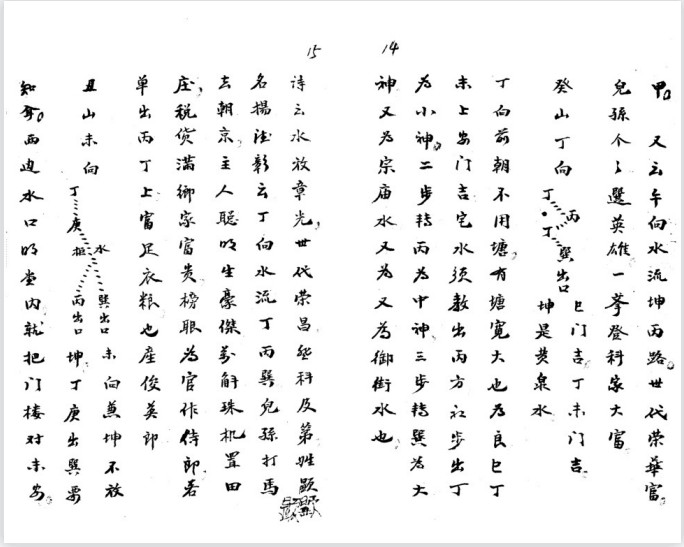 14
甲。又云午向水流坤丙路。世代荣華富。
兒孫个々選英雄一举登科家大富
癸山丁向
丁
丙
丁
巽出口
巳门吉。丁未门吉
坤是黄泉水
丁向前朝不用塘,有塘寬大也為良巳丁
未上安门吉宅水须教出丙方初步出丁
为小神。二步转丙为中神三步转巽为大
神又为宗庙水又为又為御街水也
15
诗云水放章光,世代荣昌登科及第姓顕
名揚法彰云丁向水流丁丙巽兒孫打馬
去朝京。主人聪明生豪傑万斛珠机置田
庄,税货滿鄉家富贵榜眼为官作侍郎若
单出丙丁上富足衣粮也產俊英郎
丑山未向
丁
庚
水
巽出口
丙出口
未向兼坤不放
坤丁庚出巽要
知奇。西边水口明堂内就把门楼对未安。